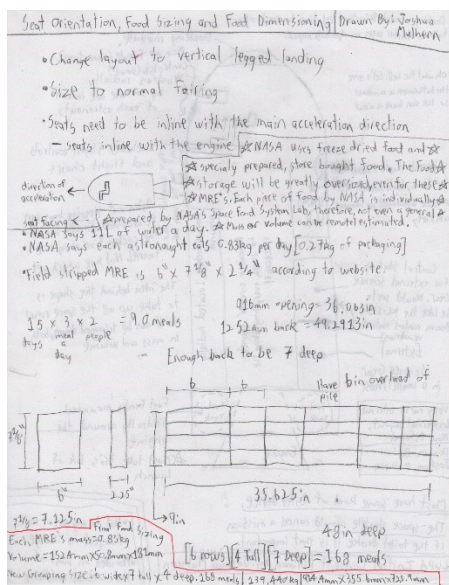 Seat Orientation, Food Sizing and Food Dimensioning | Drawn By: Joshua Mulhern
• Change layout to vertical legged landing
• Size to normal fairing
• Seats need to be inline with the main acceleration direction
- seats inline with the engine
☆ NASA uses freeze dried food and ☆
☆ specialy prepared, store bought food. The Food ☆
☆ storage will be greatly oversized, even for these ☆
☆ MRE's. Each piece of food by NASA is individually ☆
☆ prepared, by NASA's Space Food System Lab, therefore, not even a general ☆
☆ Mass or Volume can be remotel estimated.
direction of acceleration
seat facing <-
• NASA says 11L of water a day.
• NASA says each astronaught eats 0.83kg per day [0.27kg of packaging]
• Field stripped MRE is 6" x 7 1/8" x 2 1/4" according to website
916mm opening = 36.063in
1252mm back = 49.2913in
15 x 3 x 2 = 90 meals
days meal people
a
day
- Enough back to be 7 deep
6 6
Have 6in overhead of pile
7 1/8"
6"
2.25"
9in
35.625in
7 1/8 = 7.125in
48in deep
Final Food Sizing
Each MRE's mass=0.83kg
Volume=152.4mm x 50.8mm x 181mm
[6 rows][4 Tall][7 Deep] = 168 meals
New Grouping Size: 6 wide x 7 tall x 4 deep, 168 meals | 139,440kg | 914.4mm x 355.6mm x 723.9mm